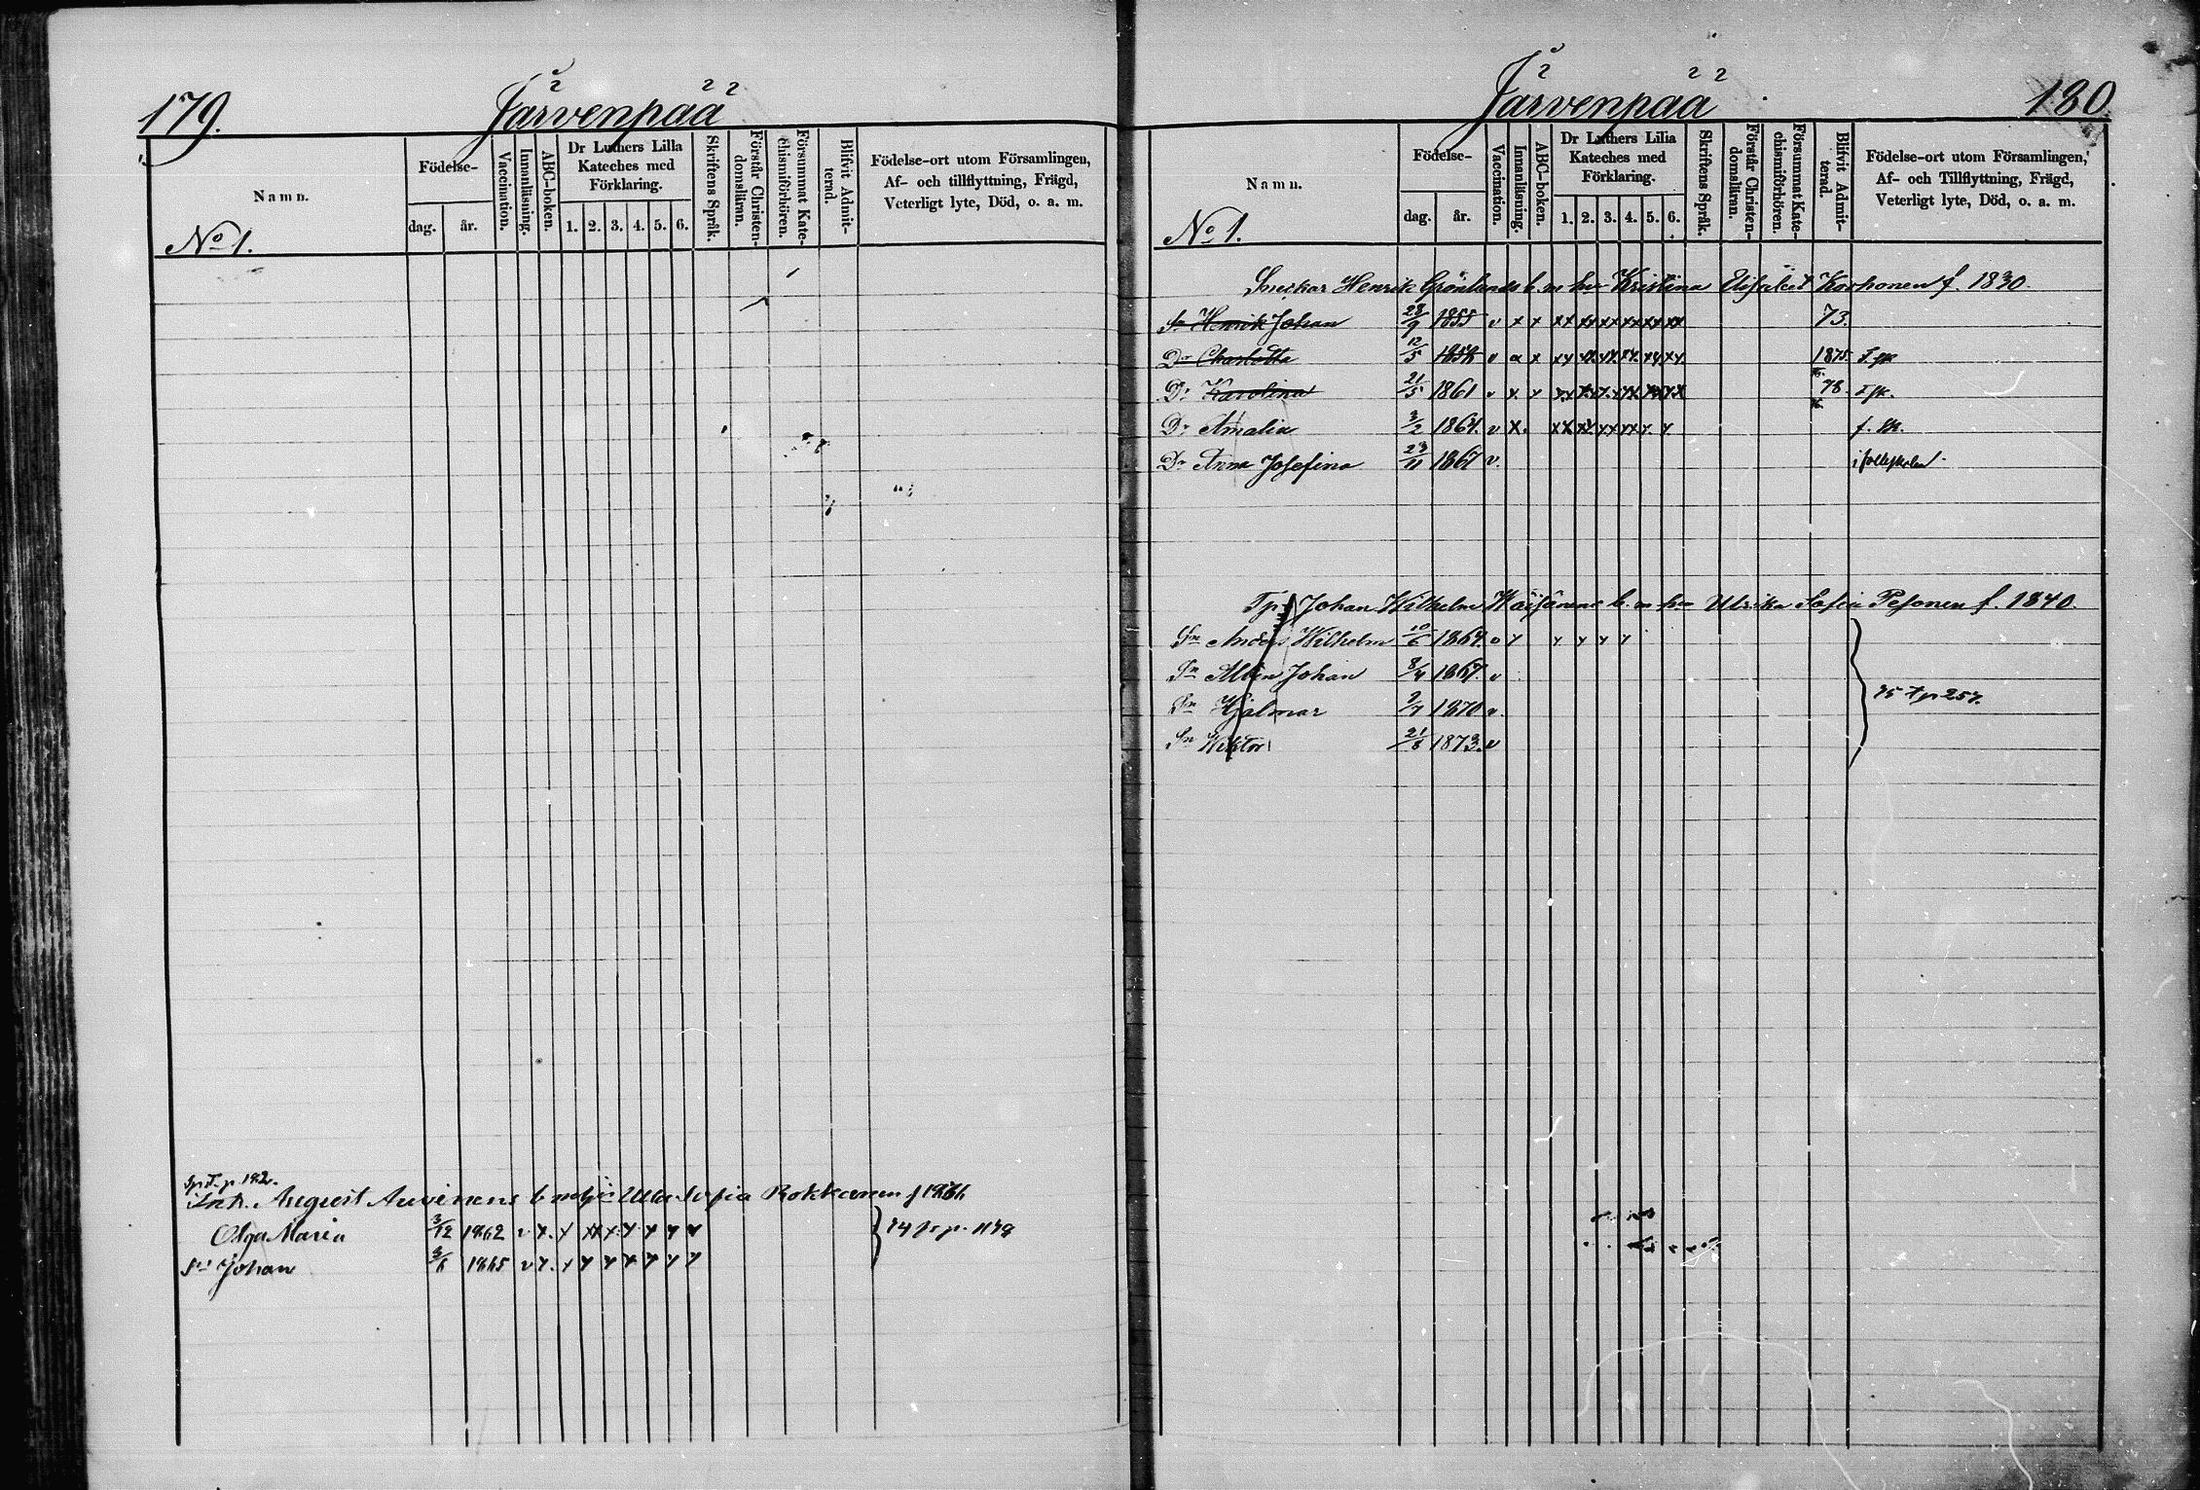 179.
Järvenpää
Namn.
Födelse-
dag.
år.
Vaccination.
Innanläsning.
ABC-boken.
Dr Luthers Lilla
Kateches med
Förklaring.
1. 2. 3. 4. 5. 6.
Skriftens Språk.
Förstår Christen-
domsläran.
Försummat Kate-
chismiförhören.
Blifvit Admit-
terad.
Födelse-ort utom Församlingen,
Af- och tillflyttning, Frägd,
Veterligt lyte, Död, o. a. m.
No 1.
August Auvinens b. Sofia Rokkanen f
Olga Maria 3/12 1862 v
Johan 1865 v
74
Järvenpää
180
Namn.
Födelse-
dag.
år.
Vaccination.
Innanläsning.
ABC-boken.
Dr Luthers Lilla
Kateches med
Förklaring.
1. 2. 3. 4. 5. 6.
Skriftens Språk.
Förstår Christen-
domsläran.
Försummat Kate-
chismiförhören.
Blifvit Admit-
terad.
Födelse-ort utom Församlingen,
Af- och Tillflyttning, Frägd,
Veterligt lyte, Död, o. a. m.
No 1.
Henrik Grönlunds b. m hu Kristina Elisabet Korhonen f. 1830.
Sn Henrik Johan 28/9 1855 v x x xx xx xx xx xx xx 73.
Dr Charlotta 12/5 1858 v 1875.
Dr Karolina 21/5 1861 v 78.
Dr Amalia 3/2 1864. v
Dr Anna Josefina 23/11 1867 v.
Johan Wilhelm b. m hu Ulrika Sofia Pesonen f. 1840.
Sn Anders Wilhelm 10/6 1864. v
Sn Albin Johan 8/4 1867. v
Sn Hjalmar 1870 v.
Sn Wiktor 21/8 1873. v
75 257.